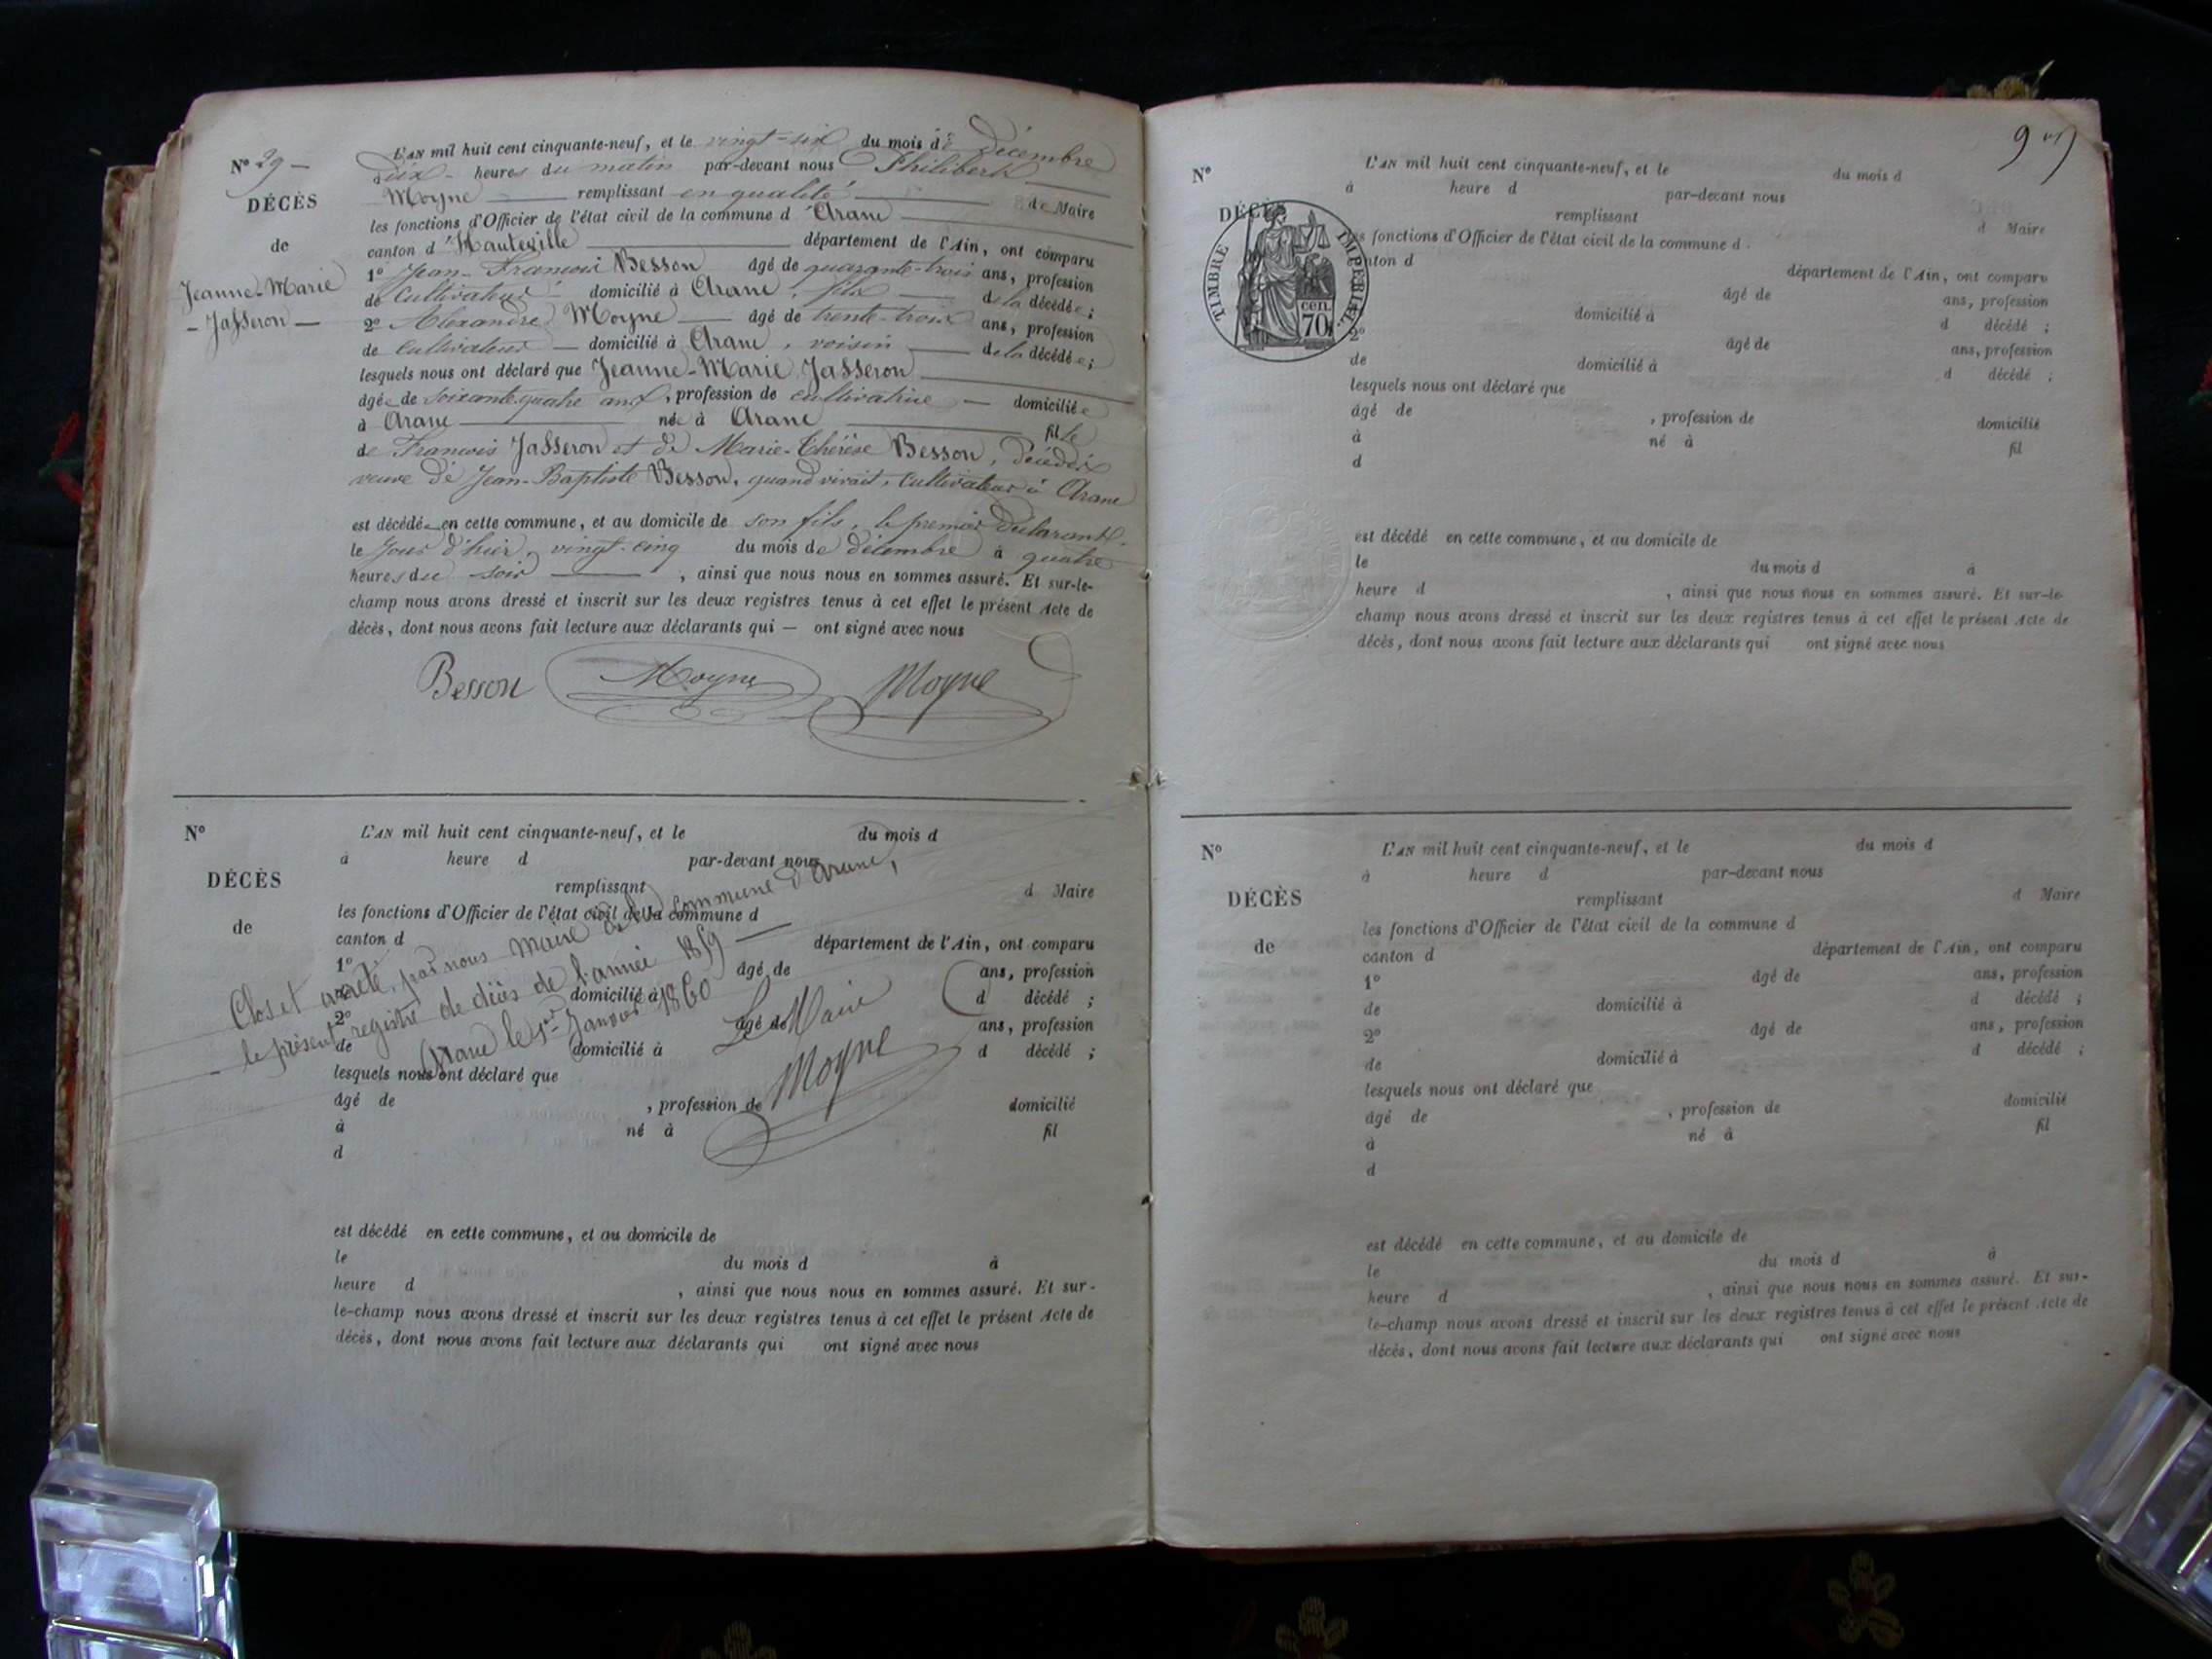 N° 29 —
DÉCÈS
de
Jeanne-Marie
- Jasseron —
L'AN mil huit cent cinquante-neuf, et le vingt-six du mois de Décembre
dix heures du matin par-devant nous Philibert
Moyne remplissant en qualité de Maire
les fonctions d'Officier de l'état civil de la commune d'Arane
canton d'Hauteville département de l'Ain, ont comparu
1° Jean-François Besson âgé de quarante-trois ans, profession
de Cultivateur domicilié à Arane, fils de la décédée ;
2° Alexandre Moyne âgé de trente-trois ans, profession
de Cultivateur — domicilié à Arane, voisin de la décédée ;
lesquels nous ont déclaré que Jeanne-Marie Jasseron
âgée de soixante quatre ans, profession de cultivatrice — domiciliée
à Arane née à Arane fille
de François Jasseron et de Marie-Thérèse Besson, décédés
veuve de Jean-Baptiste Besson, quand vivait, Cultivateur à Arane
est décédée en cette commune, et au domicile de son fils, le premier déclarant.
le jour d'hier, vingt-cinq du mois de décembre à quatre
heures du soir , ainsi que nous nous en sommes assuré. Et sur-le-
champ nous avons dressé et inscrit sur les deux registres tenus à cet effet le présent Acte de
décès, dont nous avons fait lecture aux déclarants qui — ont signé avec nous
Besson Moyne Moyne
N°
DÉCÈS
de
L'AN mil huit cent cinquante-neuf, et le du mois d
à heure d par-devant nous
remplissant d Maire
les fonctions d'Officier de l'état civil de la commune d
canton d département de l'Ain, ont comparu
1° âgé de ans, profession
de domicilié à d décédé ;
2° âgé de ans, profession
de domicilié à d décédé ;
lesquels nous ont déclaré que
âgé de , profession de domicilié
à né à fil
d
Clos et arrêté, par nous Maire de la commune d'Arane,
le présent registre de décès de l'année 1859 —
Arane le 1er Janvier 1860
Le Maire
Moyne
est décédé en cette commune, et au domicile de
le du mois d à
heure d , ainsi que nous nous en sommes assuré. Et sur-
le-champ nous avons dressé et inscrit sur les deux registres tenus à cet effet le présent Acte de
décès, dont nous avons fait lecture aux déclarants qui ont signé avec nous
N°
DÉCÈS
TIMBRE IMPÉRIAL
cen.
70
L'AN mil huit cent cinquante-neuf, et le du mois d
à heure d par-devant nous
remplissant d Maire
les fonctions d'Officier de l'état civil de la commune d
canton d département de l'Ain, ont comparu
âgé de ans, profession
domicilié à d décédé ;
2° âgé de ans, profession
de domicilié à d décédé ;
lesquels nous ont déclaré que
âgé de , profession de domicilié
à né à fil
d
est décédé en cette commune, et au domicile de
le du mois d à
heure d , ainsi que nous nous en sommes assuré. Et sur-le-
champ nous avons dressé et inscrit sur les deux registres tenus à cet effet le présent Acte de
décès, dont nous avons fait lecture aux déclarants qui ont signé avec nous
N°
DÉCÈS
de
L'AN mil huit cent cinquante-neuf, et le du mois d
à heure d par-devant nous
remplissant d Maire
les fonctions d'Officier de l'état civil de la commune d
canton d département de l'Ain, ont comparu
1° âgé de ans, profession
de domicilié à d décédé ;
2° âgé de ans, profession
de domicilié à d décédé ;
lesquels nous ont déclaré que
âgé de , profession de domicilié
à né à fil
d
est décédé en cette commune, et au domicile de
le du mois d à
heure d , ainsi que nous nous en sommes assuré. Et sur-
le-champ nous avons dressé et inscrit sur les deux registres tenus à cet effet le présent Acte de
décès, dont nous avons fait lecture aux déclarants qui ont signé avec nous